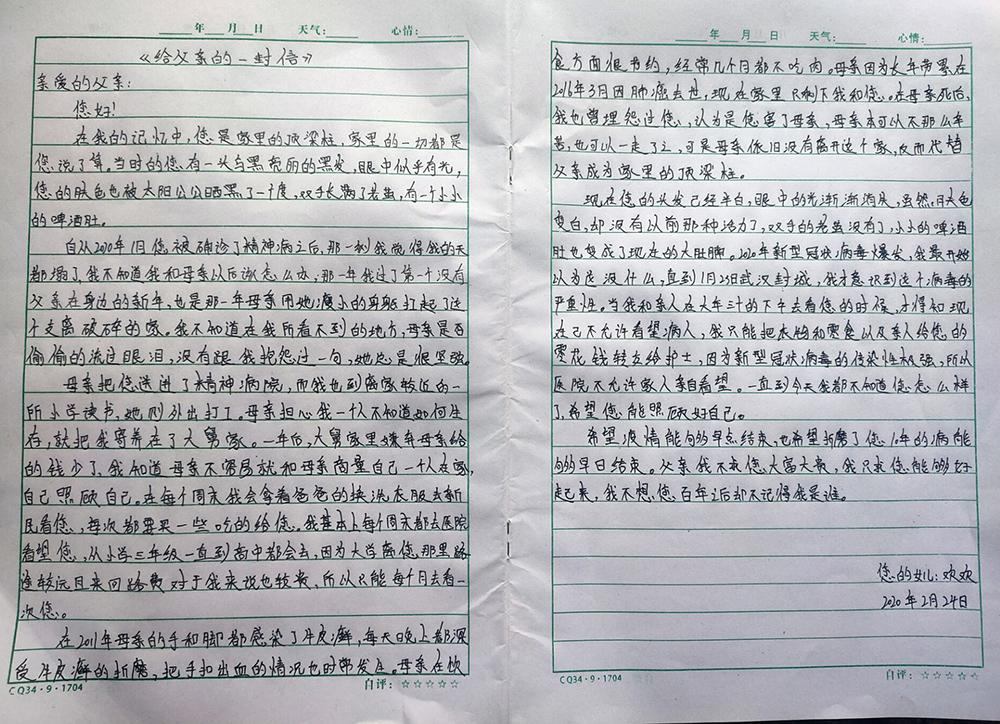 年 月 日 天气: 心情:
《给父亲的一封信》
亲爱的父亲:
您好!
在我的记忆中,您是家里的顶梁柱,家里的一切都是
您说了算。当时的您有一头乌黑亮丽的黑发,眼中似乎有光,
您的肤色也被太阳公公晒黑了一个度,双手长满了老茧,有一个小小
的啤酒肚。
自从2010年1月您被确诊了精神病之后,那一刻我觉得我的天
都塌了,我不知道我和母亲以后该怎么办,那一年我过了第一个没有
父亲在身边的新年,也是那一年母亲用她瘦小的身躯扛起了这
个支离破碎的家。我不知道在我所看不到的地方,母亲是否
偷偷的流过眼泪,没有跟我抱怨过一句,她总是很坚强。
母亲把您送进了精神病院,而我也到离家较近的一
所小学读书,她则外出打工。母亲担心我一个人不知道如何生
存,就把我寄养在了大舅家。一年后,大舅家里嫌弃母亲给
的钱少了,我知道母亲不容易就和母亲商量自己一个人在家,
自己照顾自己。在每个周末我会拿着爸爸的换洗衣服去新
民看您,每次都要买一些吃的给您。我基本上每个周末都去医院
看望您,从小学三年级一直到高中都会去,因为大学离您那里路
途较远且来回路费对于我来说也较贵,所以只能每个月去看一
次您。
在2011年母亲的手和脚都感染了牛皮癣,每天晚上都深
受牛皮癣的折磨,把手扣出血的情况也时常发生。母亲在饮
CQ34·9·1704 自评:☆☆☆☆☆
年 月 日 天气: 心情:
食方面很节约,经常几个月都不吃肉。母亲因为长年劳累在
2016年3月因肺癌去世,现在家里只剩下我和您。在母亲死后,
我也曾埋怨过您,认为是您害了母亲,母亲本可以不那么辛
苦,也可以一走了之,可是母亲依旧没有离开这个家,反而代替
父亲成为家里的顶梁柱。
现在您的头发已经半白,眼中的光渐渐消灰,虽然,肤色
变白,却没有以前那种活力了,双手的老茧没有了,小小的啤酒
肚也变成了现在的大肚腩。2020年新型冠状病毒爆发,我最开始
以为这没什么,直到1月23日武汉封城,我才意识到这个病毒的
严重性。当我和亲人在大年三十的下午去看您的时候,才得知现
在已不允许看望病人,我只能把衣物和零食以及亲人给您的
零花钱转交给护士,因为新型冠状病毒的传染性极强,所以
医院不允许家人亲自看望。一直到今天我都不知道您怎么样
了,希望您能照顾好自己。
希望疫情能够早点结束,也希望折磨了您10年的病能
够早日结束。父亲我不求您大富大贵,我只求您能够好
起来,我不想您百年之后却不记得我是谁。
您的女儿:欢欢
2020年2月24日
CQ34·9·1704 自评:☆☆☆☆☆